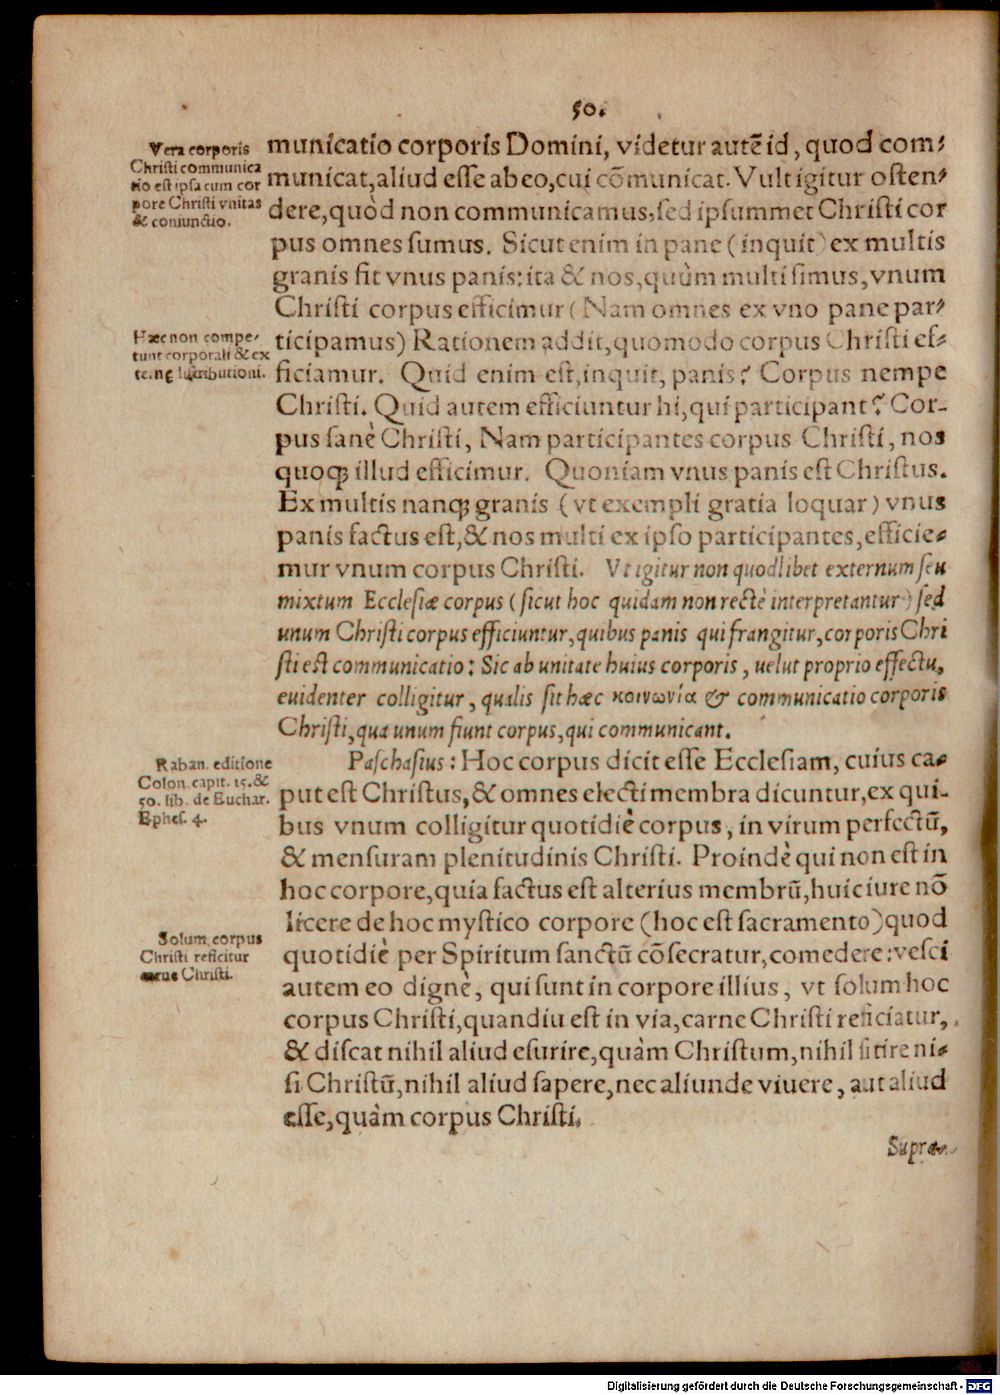 50.
Vera corporis
Christi communica
tio est ipsa cum cor
pore Christi vnitas
& coniunctio.
municatio corporis Domini, videtur autē id, quod com-
municat, aliud esse ab eo, cui cōmunicat. Vult igitur osten-
dere, quòd non communicamus, sed ipsummet Christi cor
pus omnes sumus. Sicut enim in pane (inquit) ex multis
granis fit vnus panis: ita & nos, quùm multi simus, vnum
Christi corpus efficimur (Nam omnes ex vno pane par-
Hæc non compe-
tunt corporali & ex
ternę distributioni.
ticipamus) Rationem addit, quomodo corpus Christi ef-
ficiamur. Quid enim est, inquit, panis? Corpus nempe
Christi. Quid autem efficiuntur hi, qui participant? Cor-
pus sanè Christi, Nam participantes corpus Christi, nos
quoq; illud efficimur. Quoniam vnus panis est Christus.
Ex multis nanq; granis (vt exempli gratia loquar) vnus
panis factus est, & nos multi ex ipso participantes, efficie-
mur vnum corpus Christi. Vt igitur non quodlibet externum seu
mixtum Ecclesiæ corpus (sicut hoc quidam non rectè interpretantur) sed
unum Christi corpus efficiuntur, quibus panis qui frangitur, corporis Chri
sti est communicatio: Sic ab unitate huius corporis, uelut proprio effectu,
euidenter colligitur, qualis sit hæc κοινωνία & communicatio corporis
Christi, qua unum fiunt corpus, qui communicant.
Raban. editione
Colon. capit. 15. &
50. lib. de Euchar.
Ephes. 4.
Paschasius: Hoc corpus dicit esse Ecclesiam, cuius ca-
put est Christus, & omnes electi membra dicuntur, ex qui-
bus vnum colligitur quotidiè corpus, in virum perfectū,
& mensuram plenitudinis Christi. Proindè qui non est in
hoc corpore, quia factus est alterius membrū, huic iure nō
licere de hoc mystico corpore (hoc est sacramento) quod
Solum corpus
Christi reficitur
carne Christi.
quotidiè per Spiritum sanctū cōsecratur, comedere: vesci
autem eo dignè, qui sunt in corpore illius, vt solum hoc
corpus Christi, quandiu est in via, carne Christi reficiatur,
& discat nihil aliud esurire, quàm Christum, nihil sitire ni-
si Christū, nihil aliud sapere, nec aliunde viuere, aut aliud
esse, quàm corpus Christi.
Supra
Digitalisierung gefördert durch die Deutsche Forschungsgemeinschaft - DFG